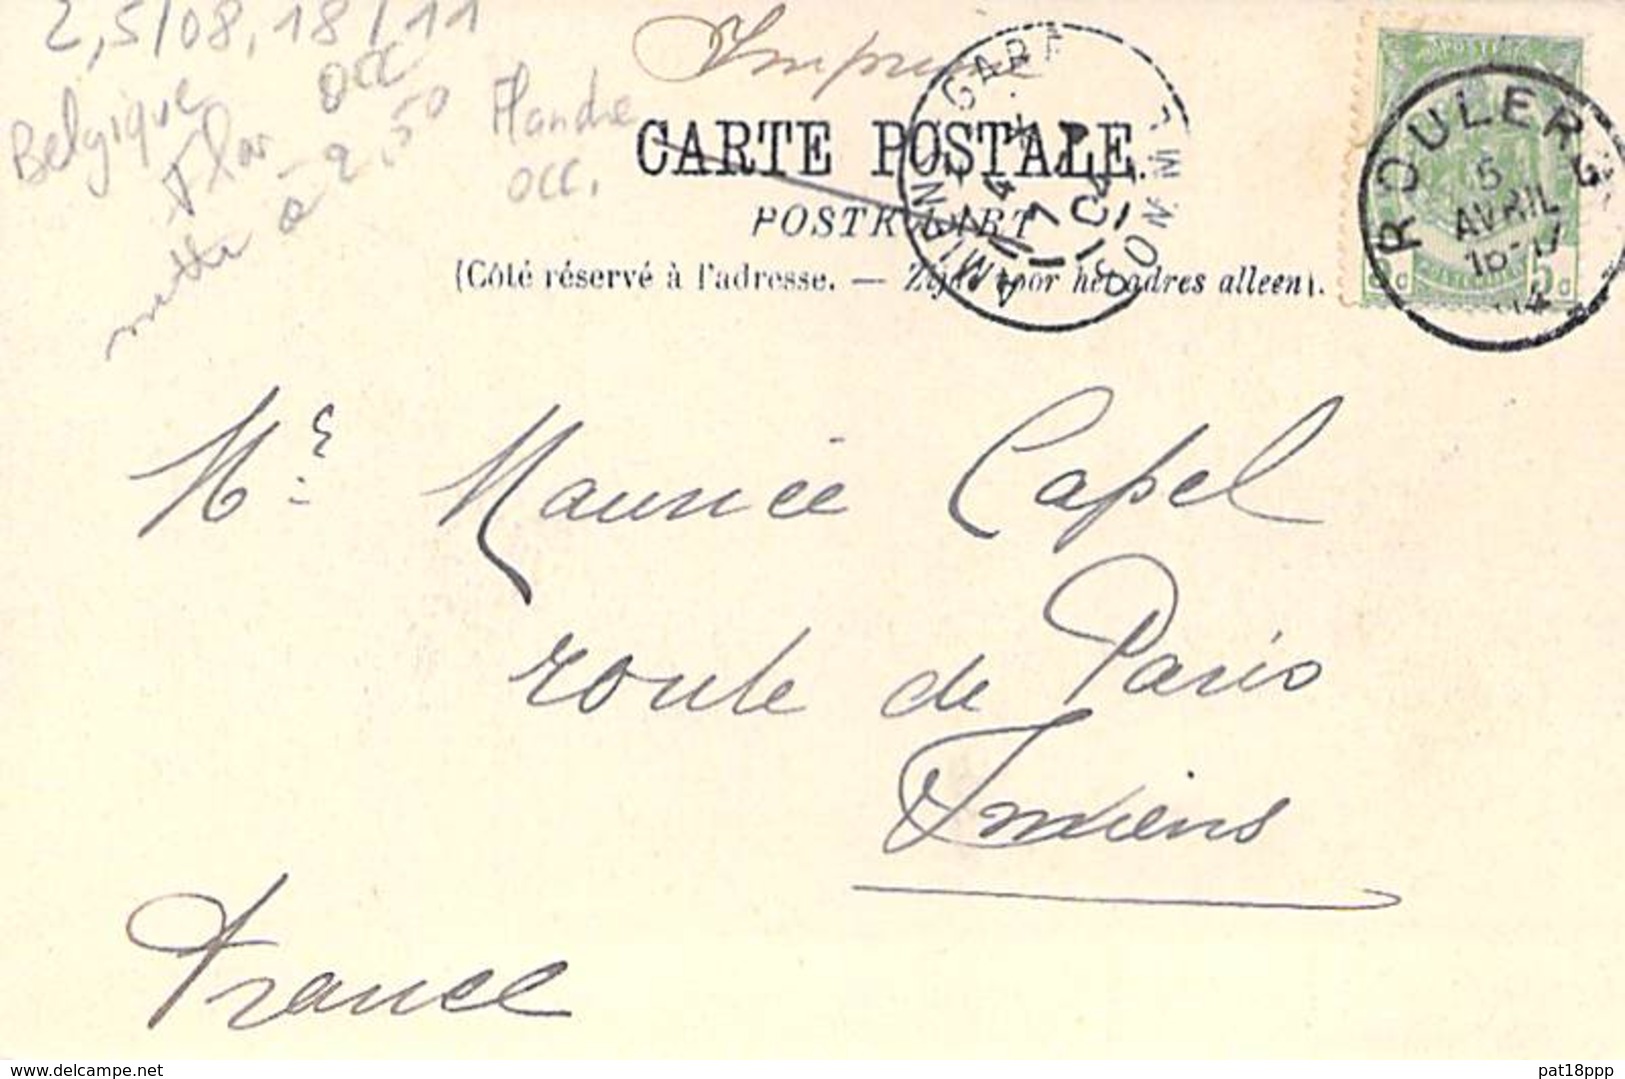 2,5/08, 18/11
Belgique
Flandre
occ.
occ
mettre à 2,50
Imprimé
CARTE POSTALE.
POSTKAART
(Côté réservé à l'adresse. — Zijde voor het adres alleen).
ROULERS
5
AVRIL
04
POSTEN
5c 5c
GARE
AMIENS
Mr. Maurice Capel
route de Paris
Amiens
France
www.delcampe.net
pat18ppp